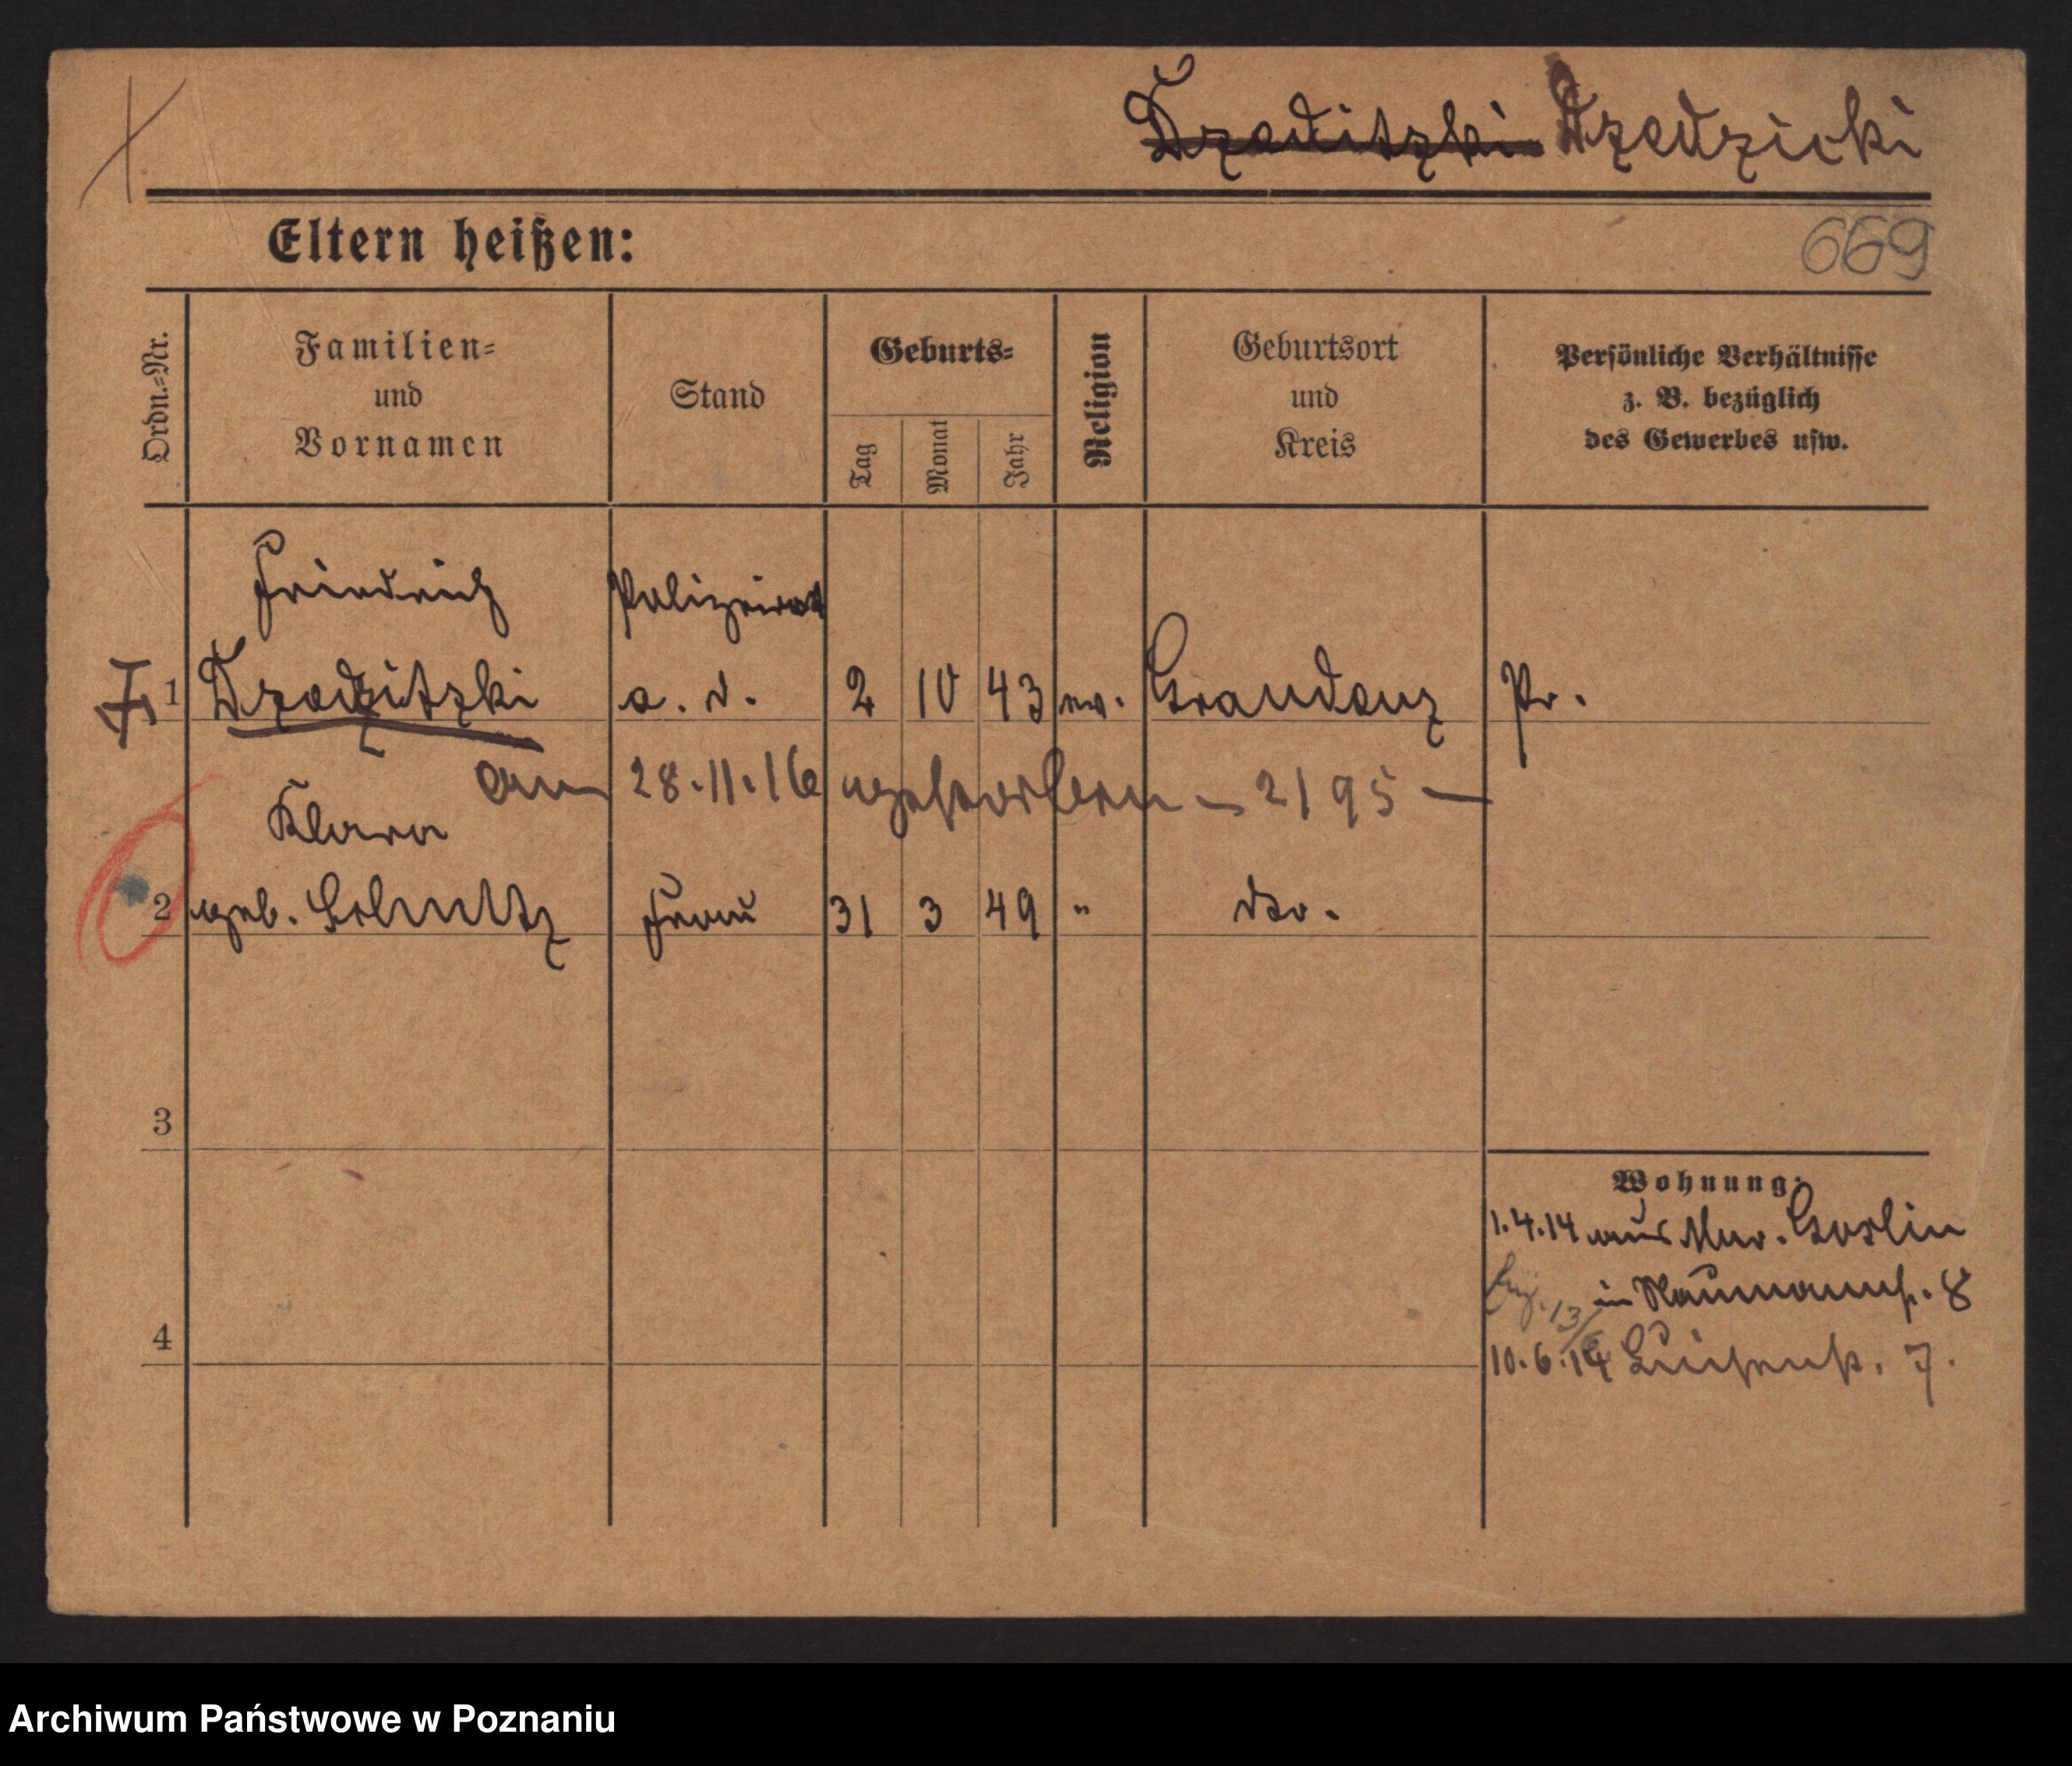 Dzaditzki Dzedzicki
Eltern heißen:
669
Ordn.=Nr.
Familien=
und
Vornamen
Stand
Geburts=
Tag
Monat
Jahr
Religion
Geburtsort
und
Kreis
Persönliche Verhältnisse
z. B. bezüglich
des Gewerbes usw.
Friedrich Polizeirat
1 a. D. 2 10 43 ev. Graudenz Pr.
am 28.11.16 gestorben - 2195 -
Klara
2 geb. Frau 31 3 49 " dto.
3
Wohnung:
1.4.14 aus Mur. Goslin
in Naumannstr. 8
13/6
4
10.6.14 Luisenstr. 7.
Archiwum Państwowe w Poznaniu